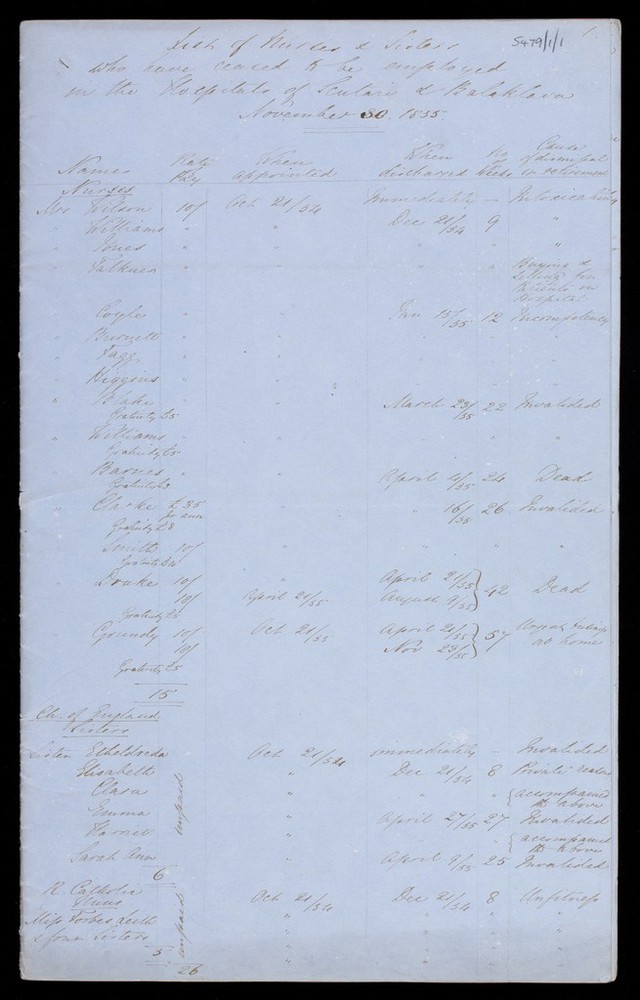 5479/1/1
1.
List of Nurses & Sisters
who have ceased to be employed
in the Hospitals of Scutari & Balaklava
November 30. 1855.
Names Rate Pay When appointed When discharged No Weeks Cause of dismissal or retirement
Nurses
Mrs Wilson 10/ Oct 21/54 Immediately — Intoxication
" Williams " " Dec 21/54 9 "
" Jones " " " " "
" Falkner " " " " Buying & selling
Hospital
Coyle " " Jan 15/55 12 Incompetency
" Burnett " " " " "
" Fagg " " " " "
" Higgins " " " " "
" Blake " " March 23/55 22 Invalided
Gratuity £5
" Williams " " " " "
Gratuity £5
" Barnes " " April 4/55 24 Dead
Gratuity £3
" Clarke £35 pr ann " " 16/55 26 Invalided
Gratuity £8
" Smith 10/ " " " "
Gratuity
" Drake 10/ " April 21/55
10/ April 21/55 August 9/55 } 42 Dead
Gratuity £5
" Grundy 10/ Oct 21/55 April 21/55 } 57 at home
10/ Nov 23/55
Gratuity £5
15
Ch. of England
Sisters
Sister Etheldreda unpaid Oct 21/54 immediately — Invalided
Elisabeth " Dec 21/54 8 Private reason
Clara " " " { accompanied the above
Emma " April 27/55 27 Invalided
Harriet " " " { accompanied the above
Sarah Ann " April 9/55 25 Invalided
6
R. Catholic
Nuns unpaid Oct 21/54 Dec 21/54 8 Unfitness
Miss Forbes Leith " " " "
& four Sisters " " " "
5
26